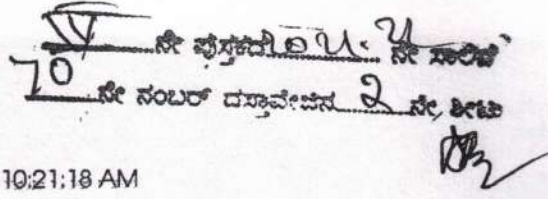 IV ನೇ ಪುಸ್ತಕದ ನೇ ಸಾಲಿನ
70 ನೇ ನಂಬರ್ ದಸ್ತಾವೇಜಿನ 2 ನೇ, ಶೀಟು
10:21:18 AM